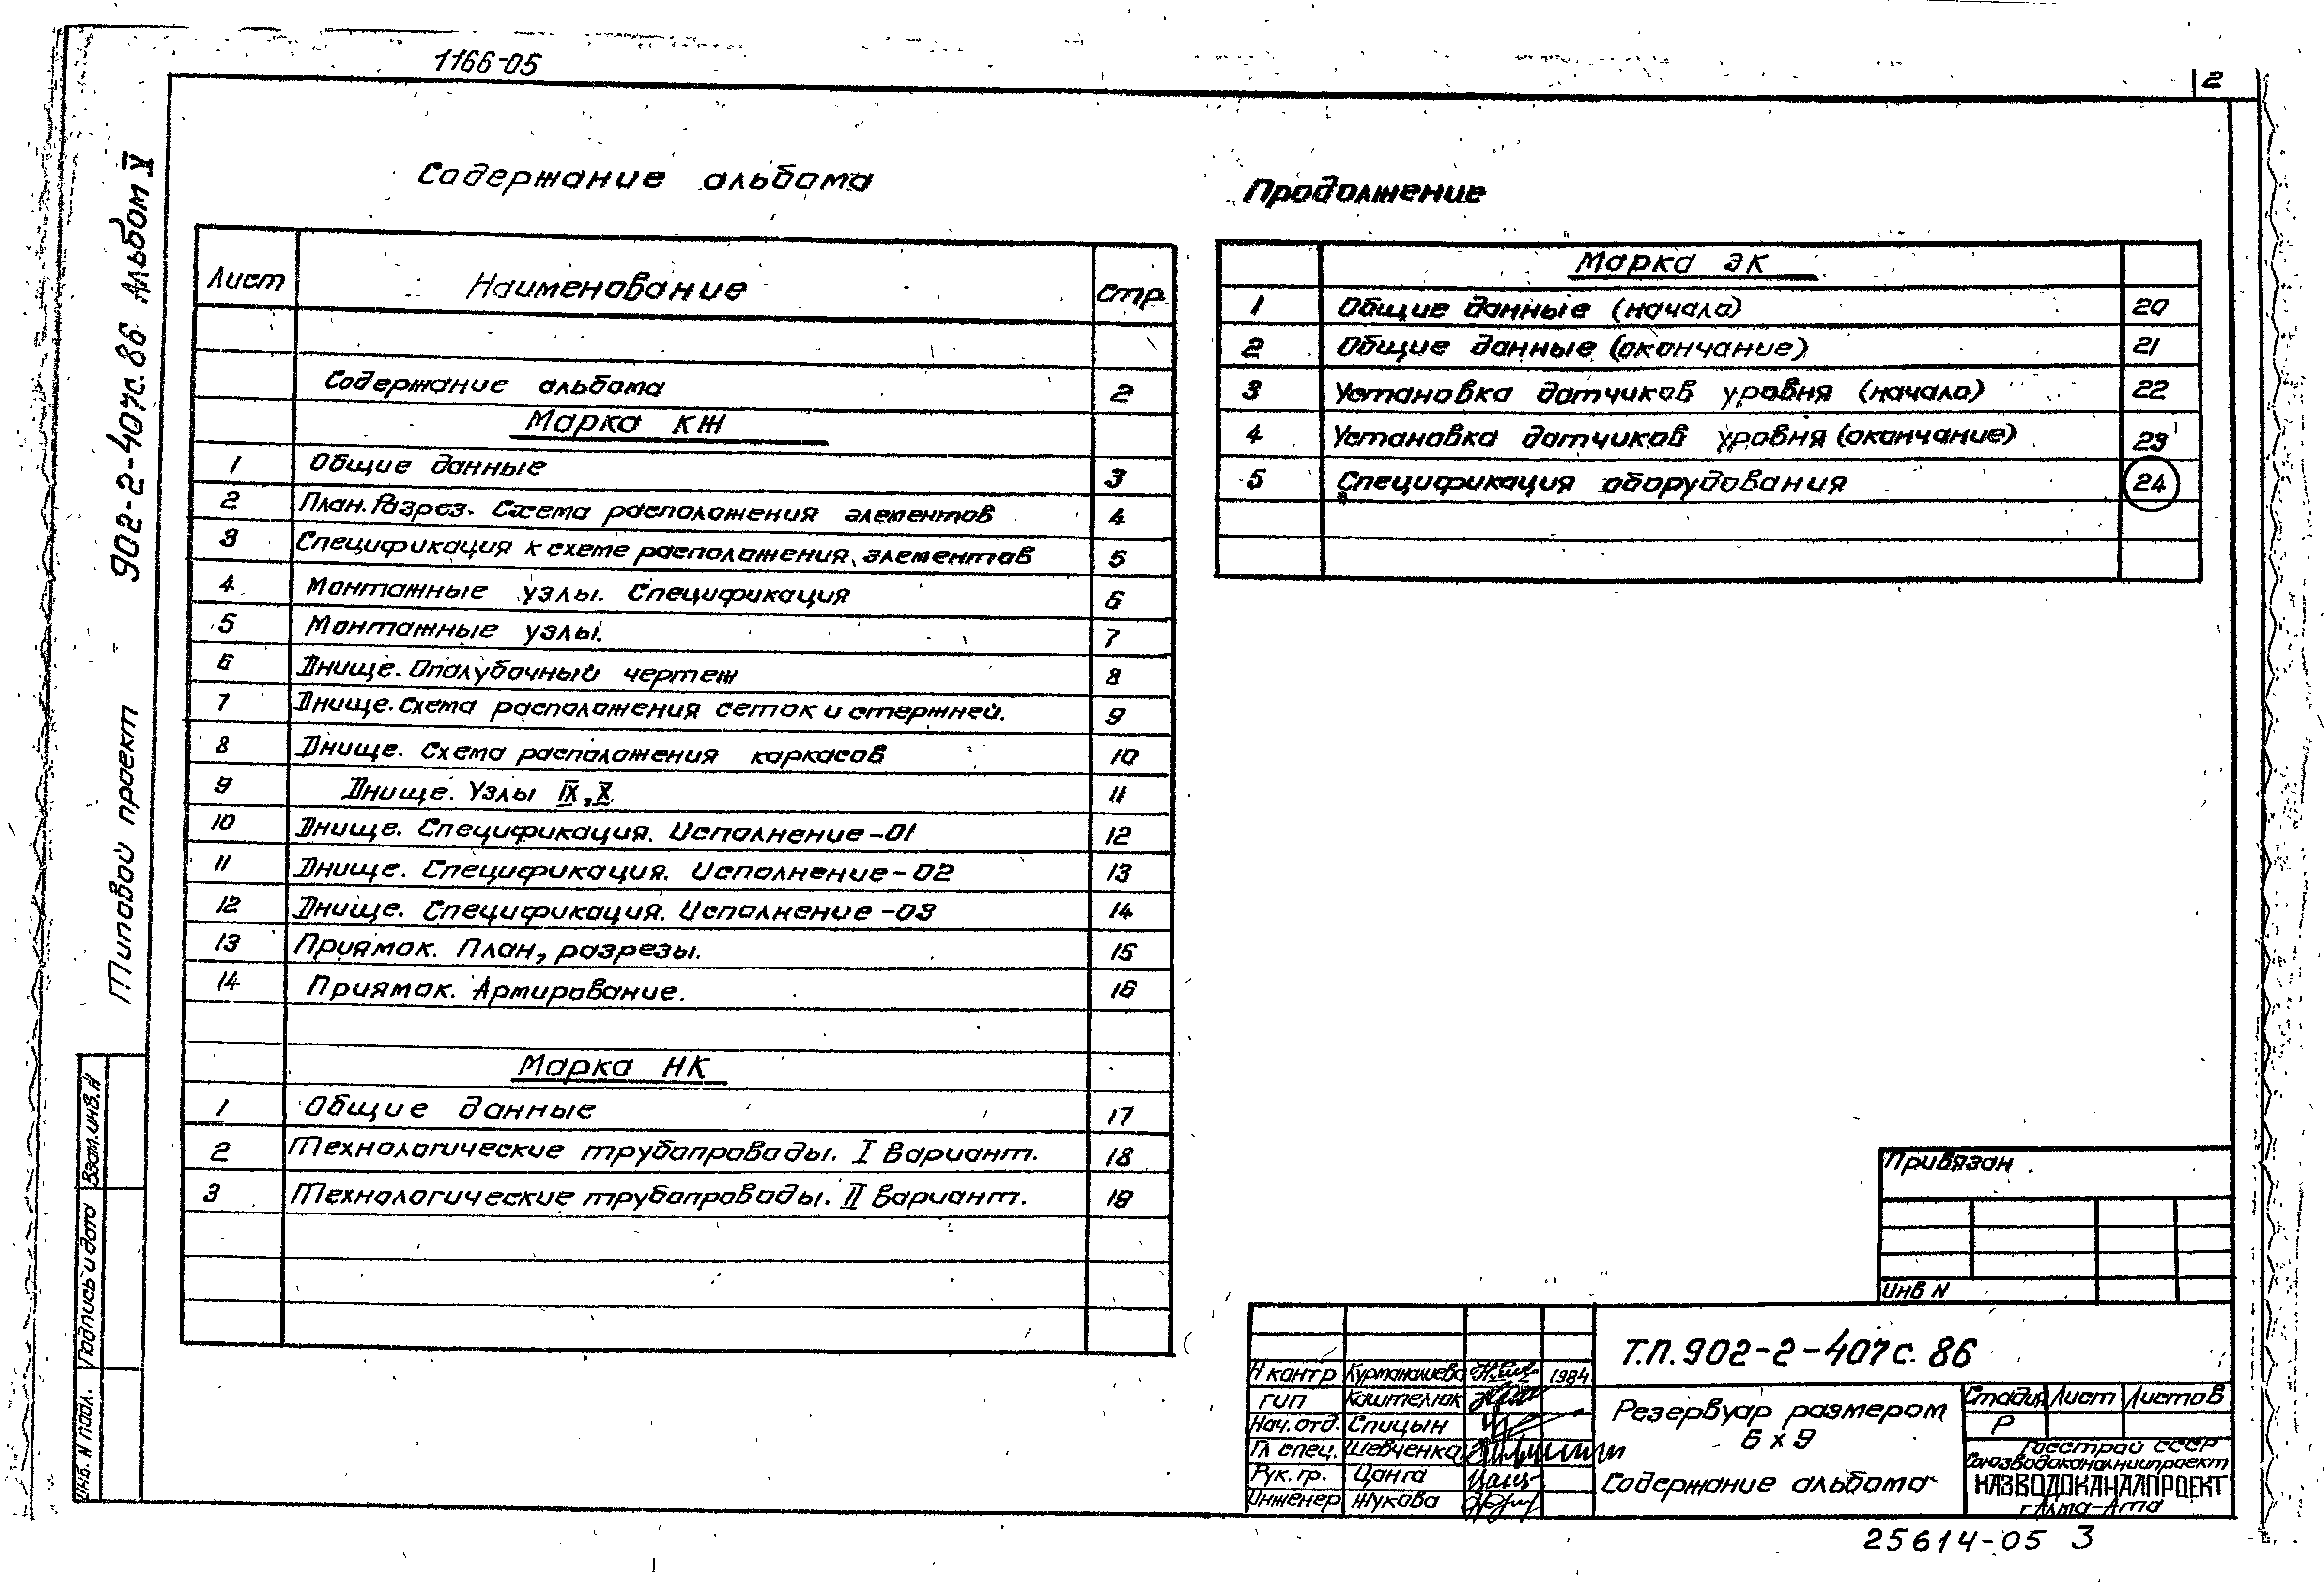 1166-05
2
Типовой проект 902-2-407с.86 Альбом V
Содержание альбома
Лист Наименование Стр
Содержание альбома 2
Марка КЖ
1 Общие данные 3
2 План. Разрез. Схема расположения элементов 4
3 Спецификация к схеме расположения элементов 5
4 Монтажные узлы. Спецификация 6
5 Монтажные узлы. 7
6 Днище. Опалубочный чертеж 8
7 Днище. Схема расположения сеток и стержней. 9
8 Днище. Схема расположения каркасов 10
9 Днище. Узлы IX, X. 11
10 Днище. Спецификация. Исполнение-01 12
11 Днище. Спецификация. Исполнение-02 13
12 Днище. Спецификация. Исполнение-03 14
13 Приямок. План, разрезы. 15
14 Приямок. Армирование. 16
Марка НК
1 Общие данные 17
2 Технологические трубопроводы. I Вариант. 18
3 Технологические трубопроводы. II Вариант. 19
Продолжение
Марка ЭК
1 Общие данные (начало) 20
2 Общие данные (окончание) 21
3 Установка датчиков уровня (начало) 22
4 Установка датчиков уровня (окончание) 23
5 Спецификация оборудования 24
Взам.инв.N
Подпись и дата
Инв. N подл.
Привязан
Инв N
Т.П. 902-2-407с. 86
Н контр Курманашева 1984
ГИП Каштелюк
Нач. отд. Спицын
Гл спец. Шевченко
Рук. гр. Цанга
Инженер Жукова
Резервуар размером
6х9
Содержание альбома
Стадия Лист Листов
Р
Госстрой СССР
Союзводоканалниипроект
КАЗВОДОКАНАЛПРОЕКТ
г Алма-Ата
25614-05 3